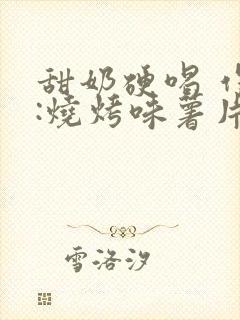 甜奶硬唱
:燒烤味薯片
雪洛汐